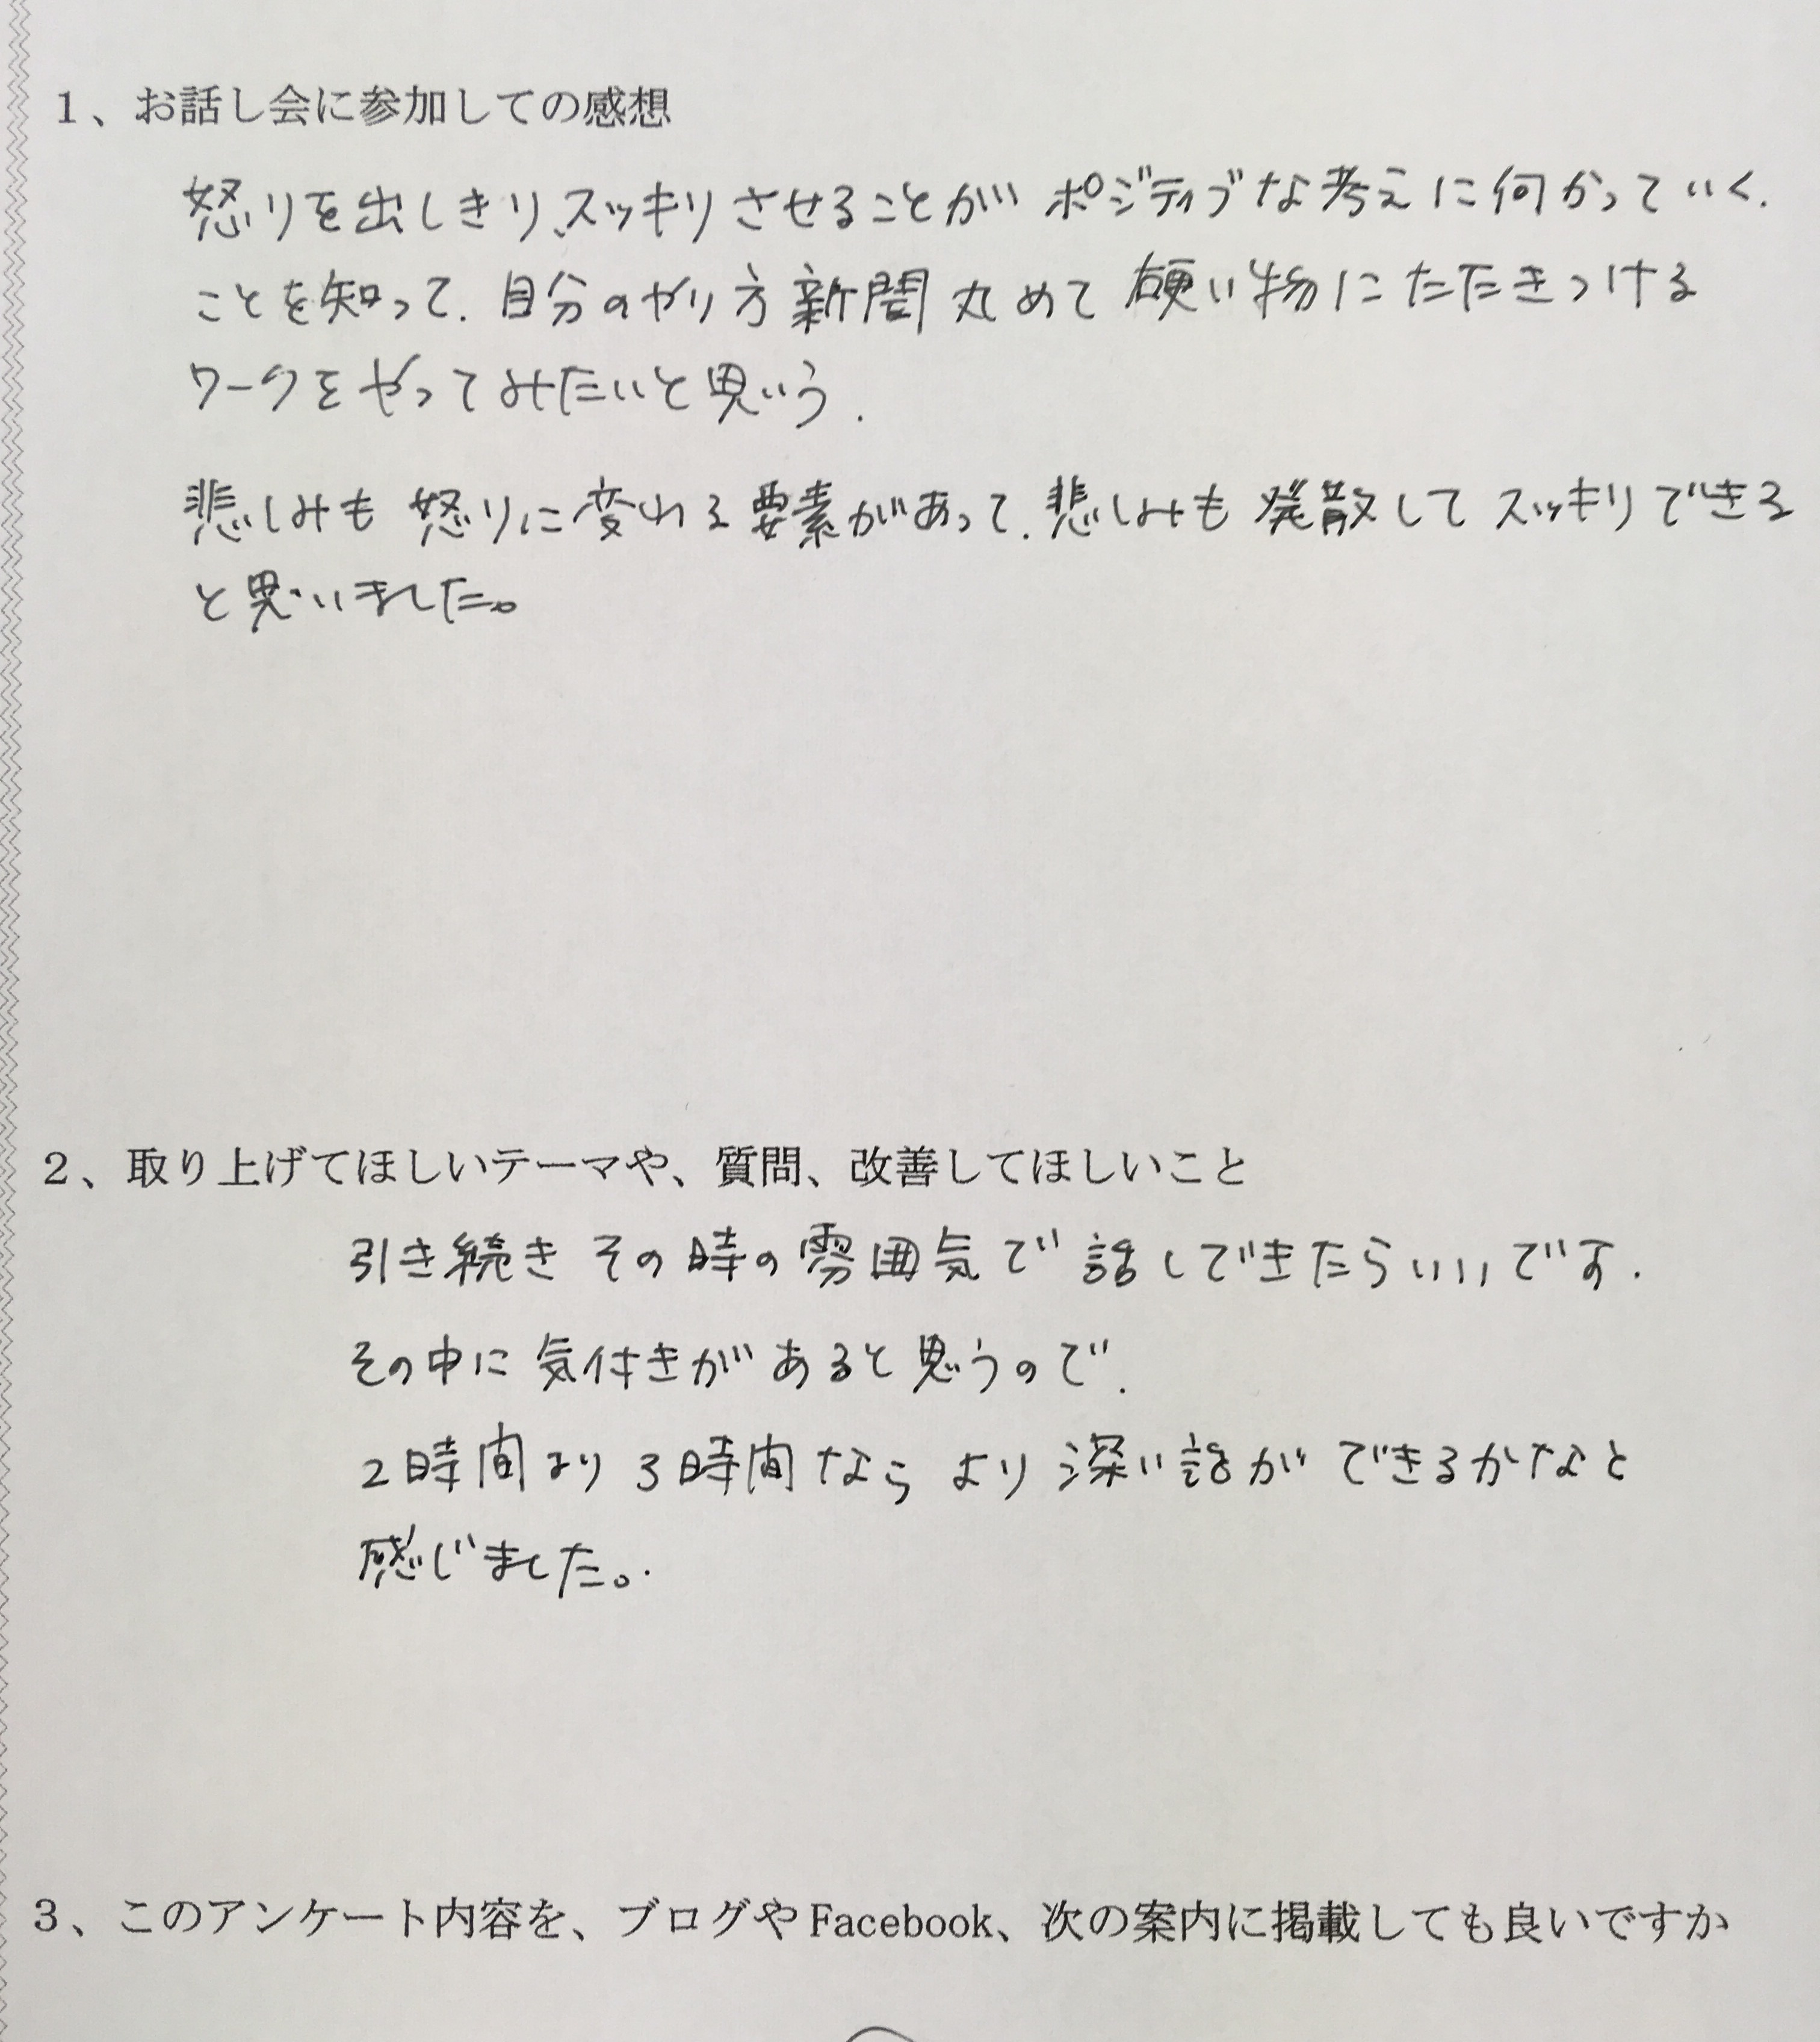 1、お話し会に参加しての感想
怒りを出しきり、スッキリさせることが ポジティブな考えに何かっていく.
ことを知って. 自分のやり方新聞丸めて 硬い物にたたきつける
ワークをやってみたいと思いう.
悲しみも 怒りに変われる要素があって. 悲しみも 発散して スッキリできる
と思いました。
2、取り上げてほしいテーマや、質問、改善してほしいこと
引き続き その時の雰囲気で 話しできたらいいです.
その中に 気付きが あると思うので.
2時間より 3時間なら より深い話が できるかなと
感じました。
3、このアンケート内容を、ブログやFacebook、次の案内に掲載しても良いですか